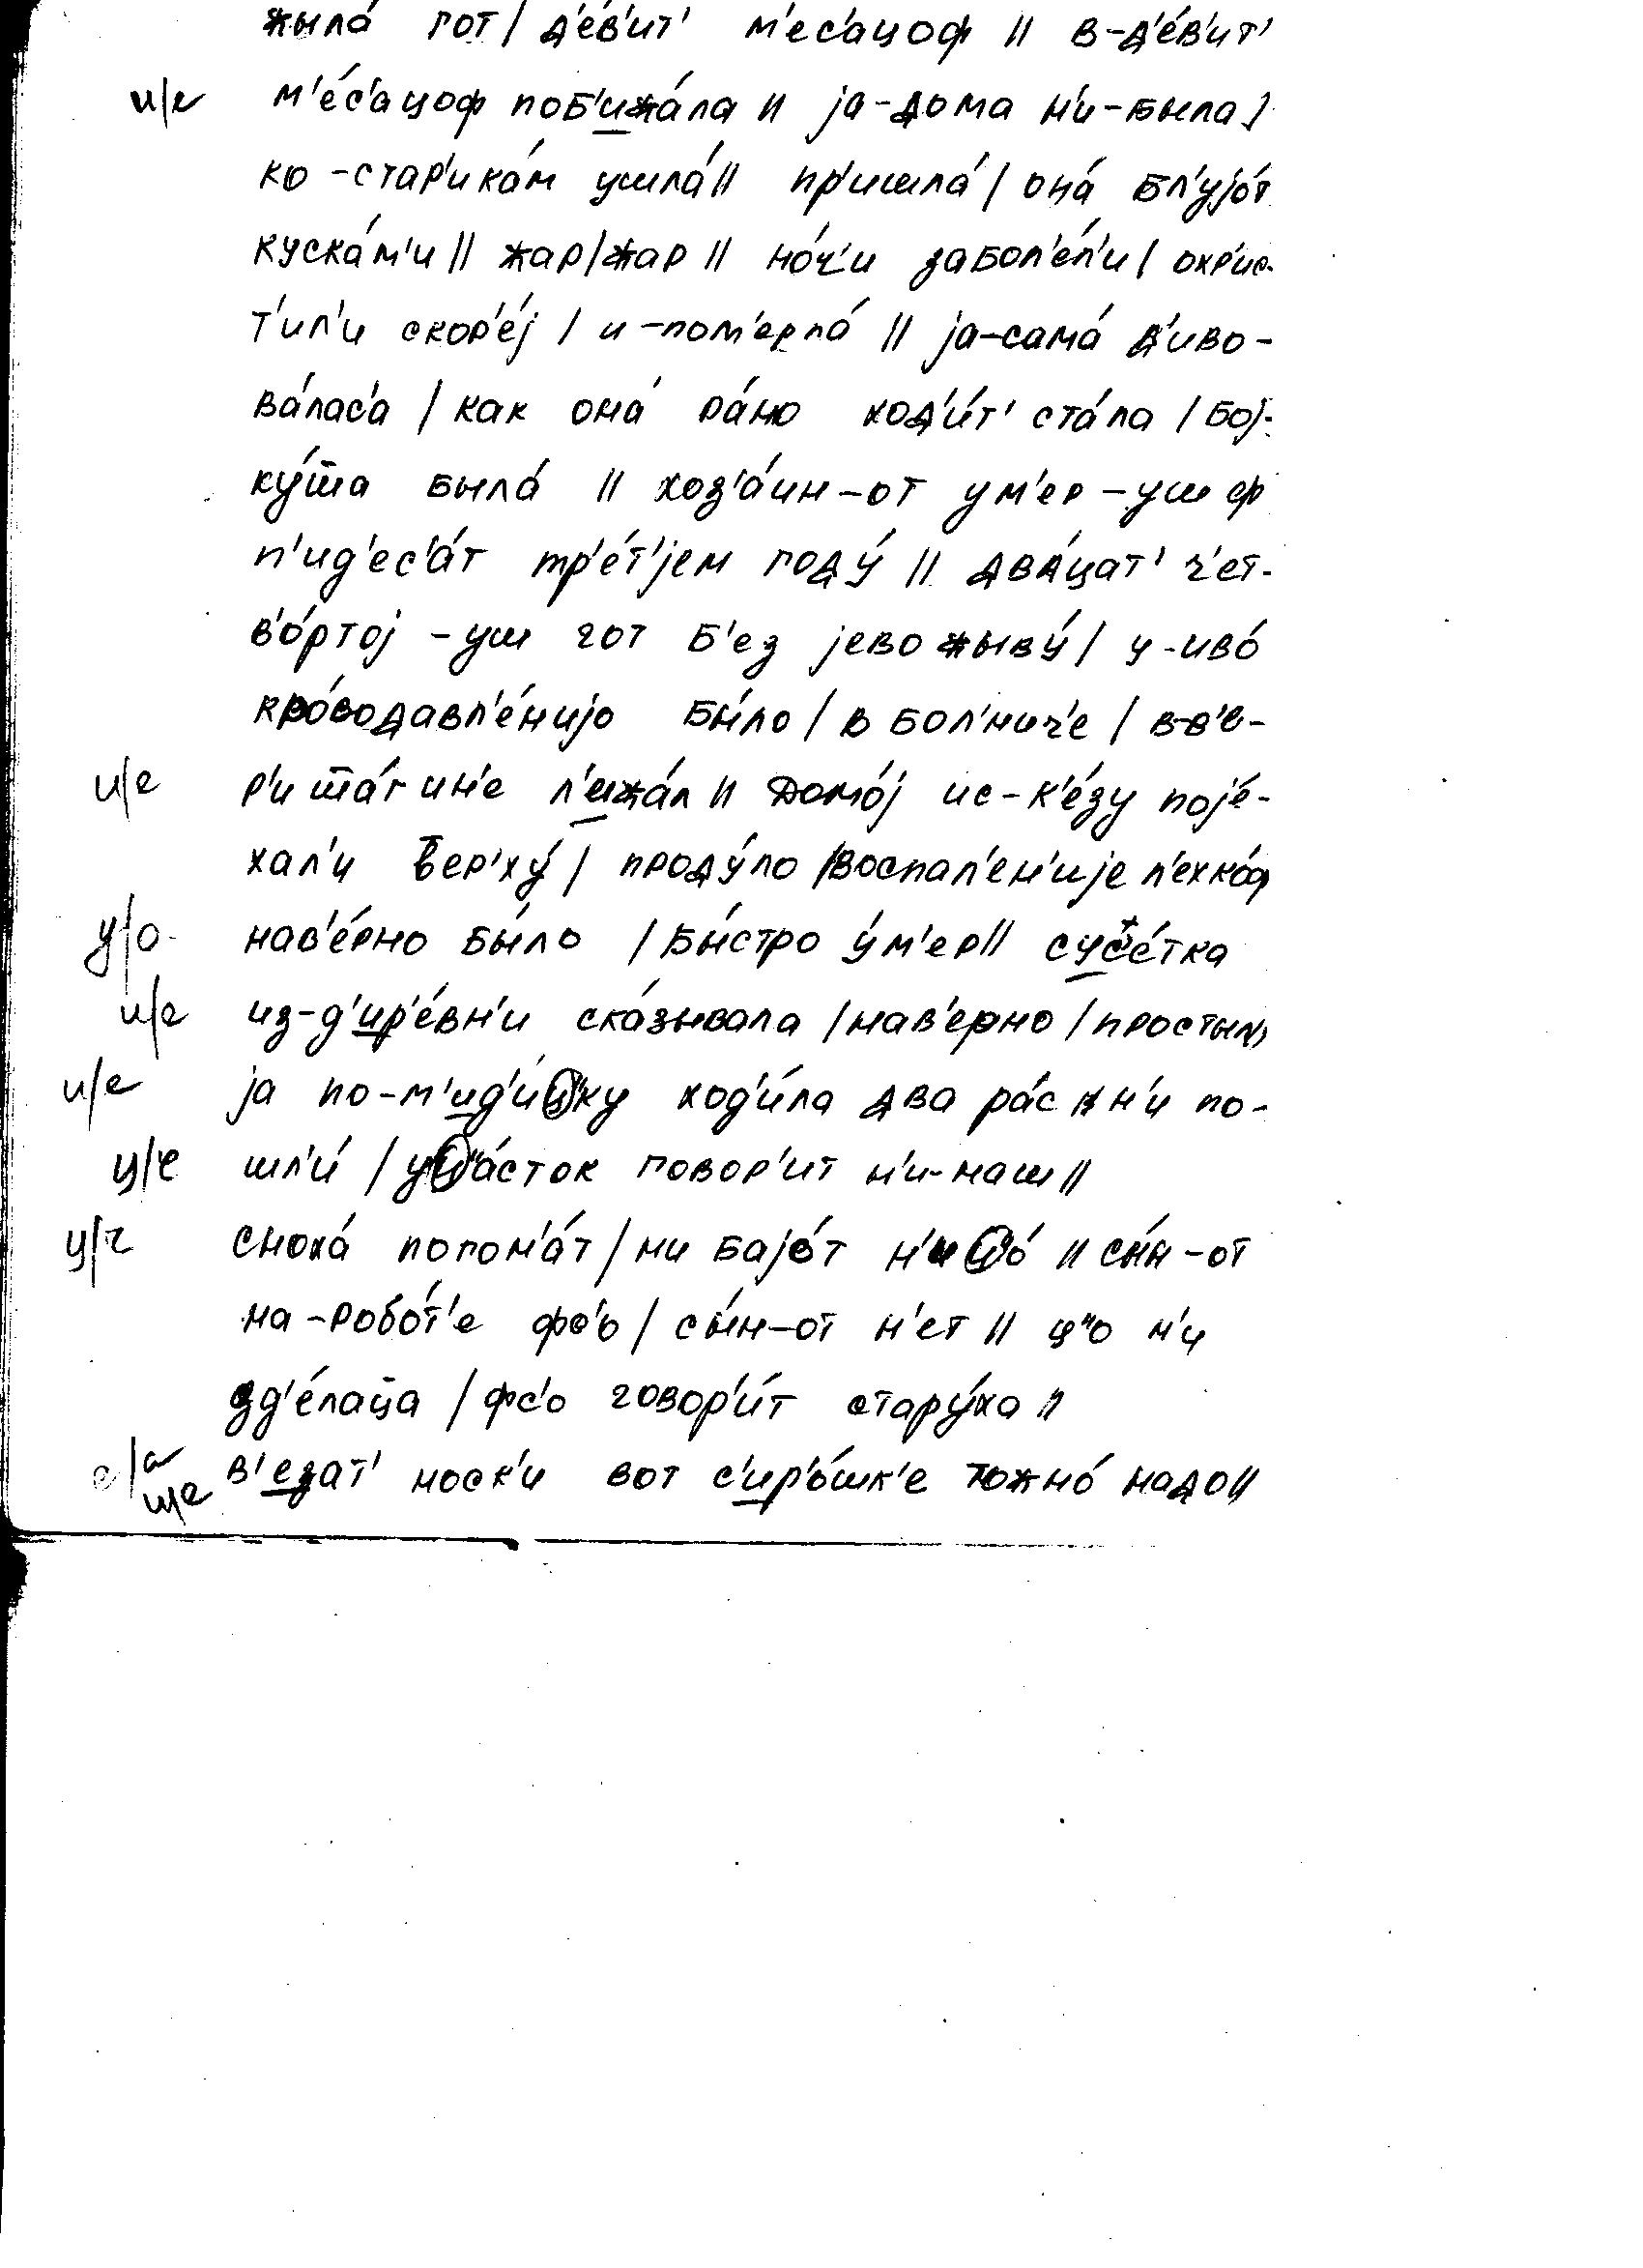 жыла́ гот / д'е́в'ит' м'ес'ацоф // в-д'е́в'ит'
и/е м'е́с'ацоф поб'ижа́ла // ја-дома н'и-была /
ко-стар'ика́м ушла́ // пр'ишла́ / она́ бл'ујо́т
куска́м'и // жар / жар // но́ч'и забол'е́л'и / охр'ис-
т'ил'и скор'е́ј / и-пом'ерла́ // ја-сама́ д'иво-
ва́лас'а / как она́ ра́но ход'и́т' ста́ла / бој-
ку́ша была́ // хоз'а́ин-от ум'ер-уш ф
п'ид'ес'а́т тр'е́т'јем году́ // два́цат' ч'ет-
в'о́ртој-уш гот б'ез јево жыву́ / у-иво́
кро́водавл'е́нијо бы́ло / в бол'нич'е / в-в'е-
и/е р'ишта́г'ин'е л'ижа́л // домо́ј ис-к'е́зу појé-
хал'и вер'ху́ / проду́ло / воспал'ен'ије л'ехко́ф
у/о нав'е́рно бы́ло / бы́стро у́м'ер // сус'е́тка
и/е из-д'ир'е́вн'и ска́зывала / нав'ерно / простыл //
и/е ја по-м'ид'и́ц"ку ход'и́ла два ра́с н'и по-
ц/ч шл'и́ / уц"а́сток говор'ит н'и-наш //
ц/ч сноха́ погон'а́т / ни бајо́т н'иц"о́ // сы́н-от
на-робо́т'е фс'о / сы́н-от н'ет // ц"о н'и
зд'е́лаца / фс'о говор'и́т стару́ха //
е/а и/е в'езат' носк'и вот с'ир'о́шк'е тожно́ надо //